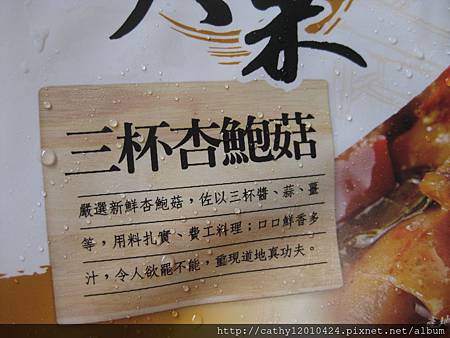 三杯杏鮑菇
嚴選新鮮杏鮑菇，佐以三杯醬、蒜、薑
等，用料扎實、費工料理；口口鮮香多
汁，令人欲罷不能，重現道地真功夫。
http://cathy12010424.pixnet.net/album